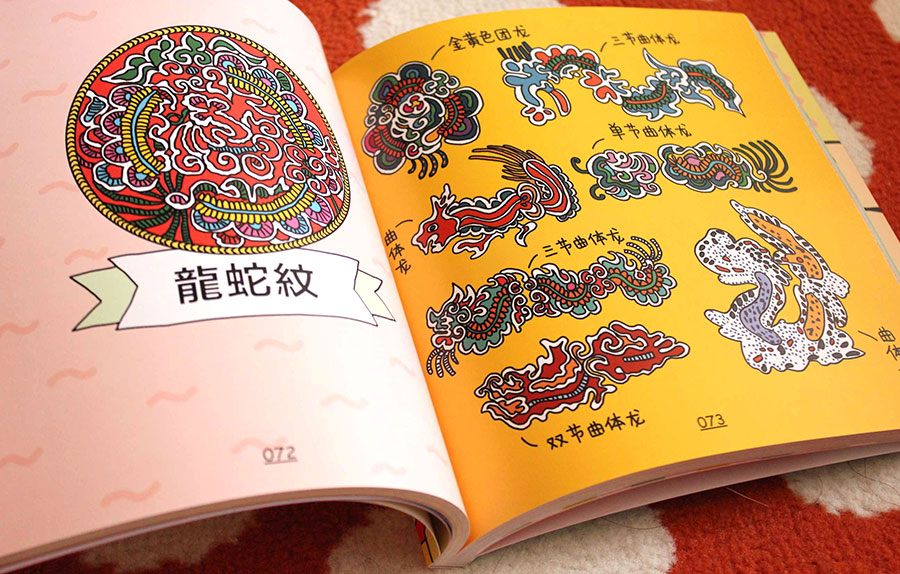 龍蛇紋
072
金黄色团龙
三节曲体龙
单节曲体龙
曲体龙
三节曲体龙
曲体
双节曲体龙
073